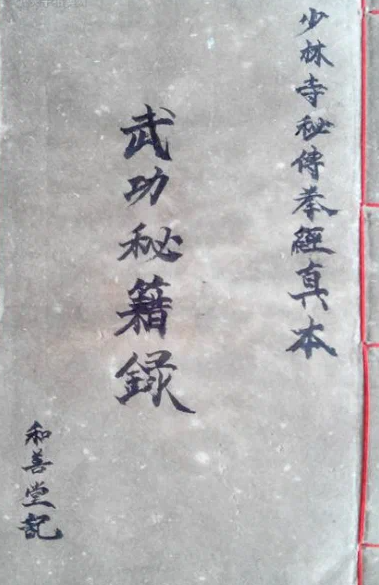 少林寺秘傳拳經真本
武功秘籍録
和善堂記